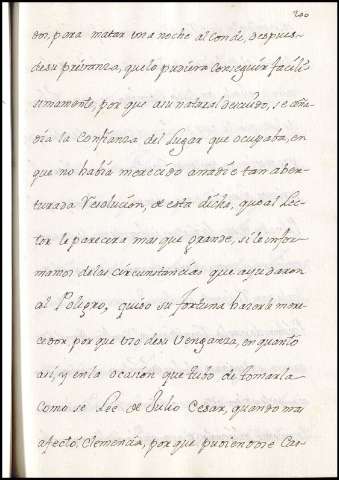 200
dor, para matar una noche al conde, despues
de su privanza, que lo pudiera conseguir facili-
simamente, por que a su natural descuido, se aña-
dia la confianza del Lugar que ocupaba, en
que no habia merecido a nadie tan aben-
turada Resolucion, de esta dicha, que al Lec-
tor le parecera mas que grande, si le infor-
mamos de las circunstancias que ayudaron
al Peligro, quiso su fortuna hazerle mere-
cedor por que uzo de su Venganza, en quanto
asi, y en la ocasion que tubo de tomarla
como se Lee de Julio Cesar, quando mas
afectó Clemencia, por que pudiendose Cas-